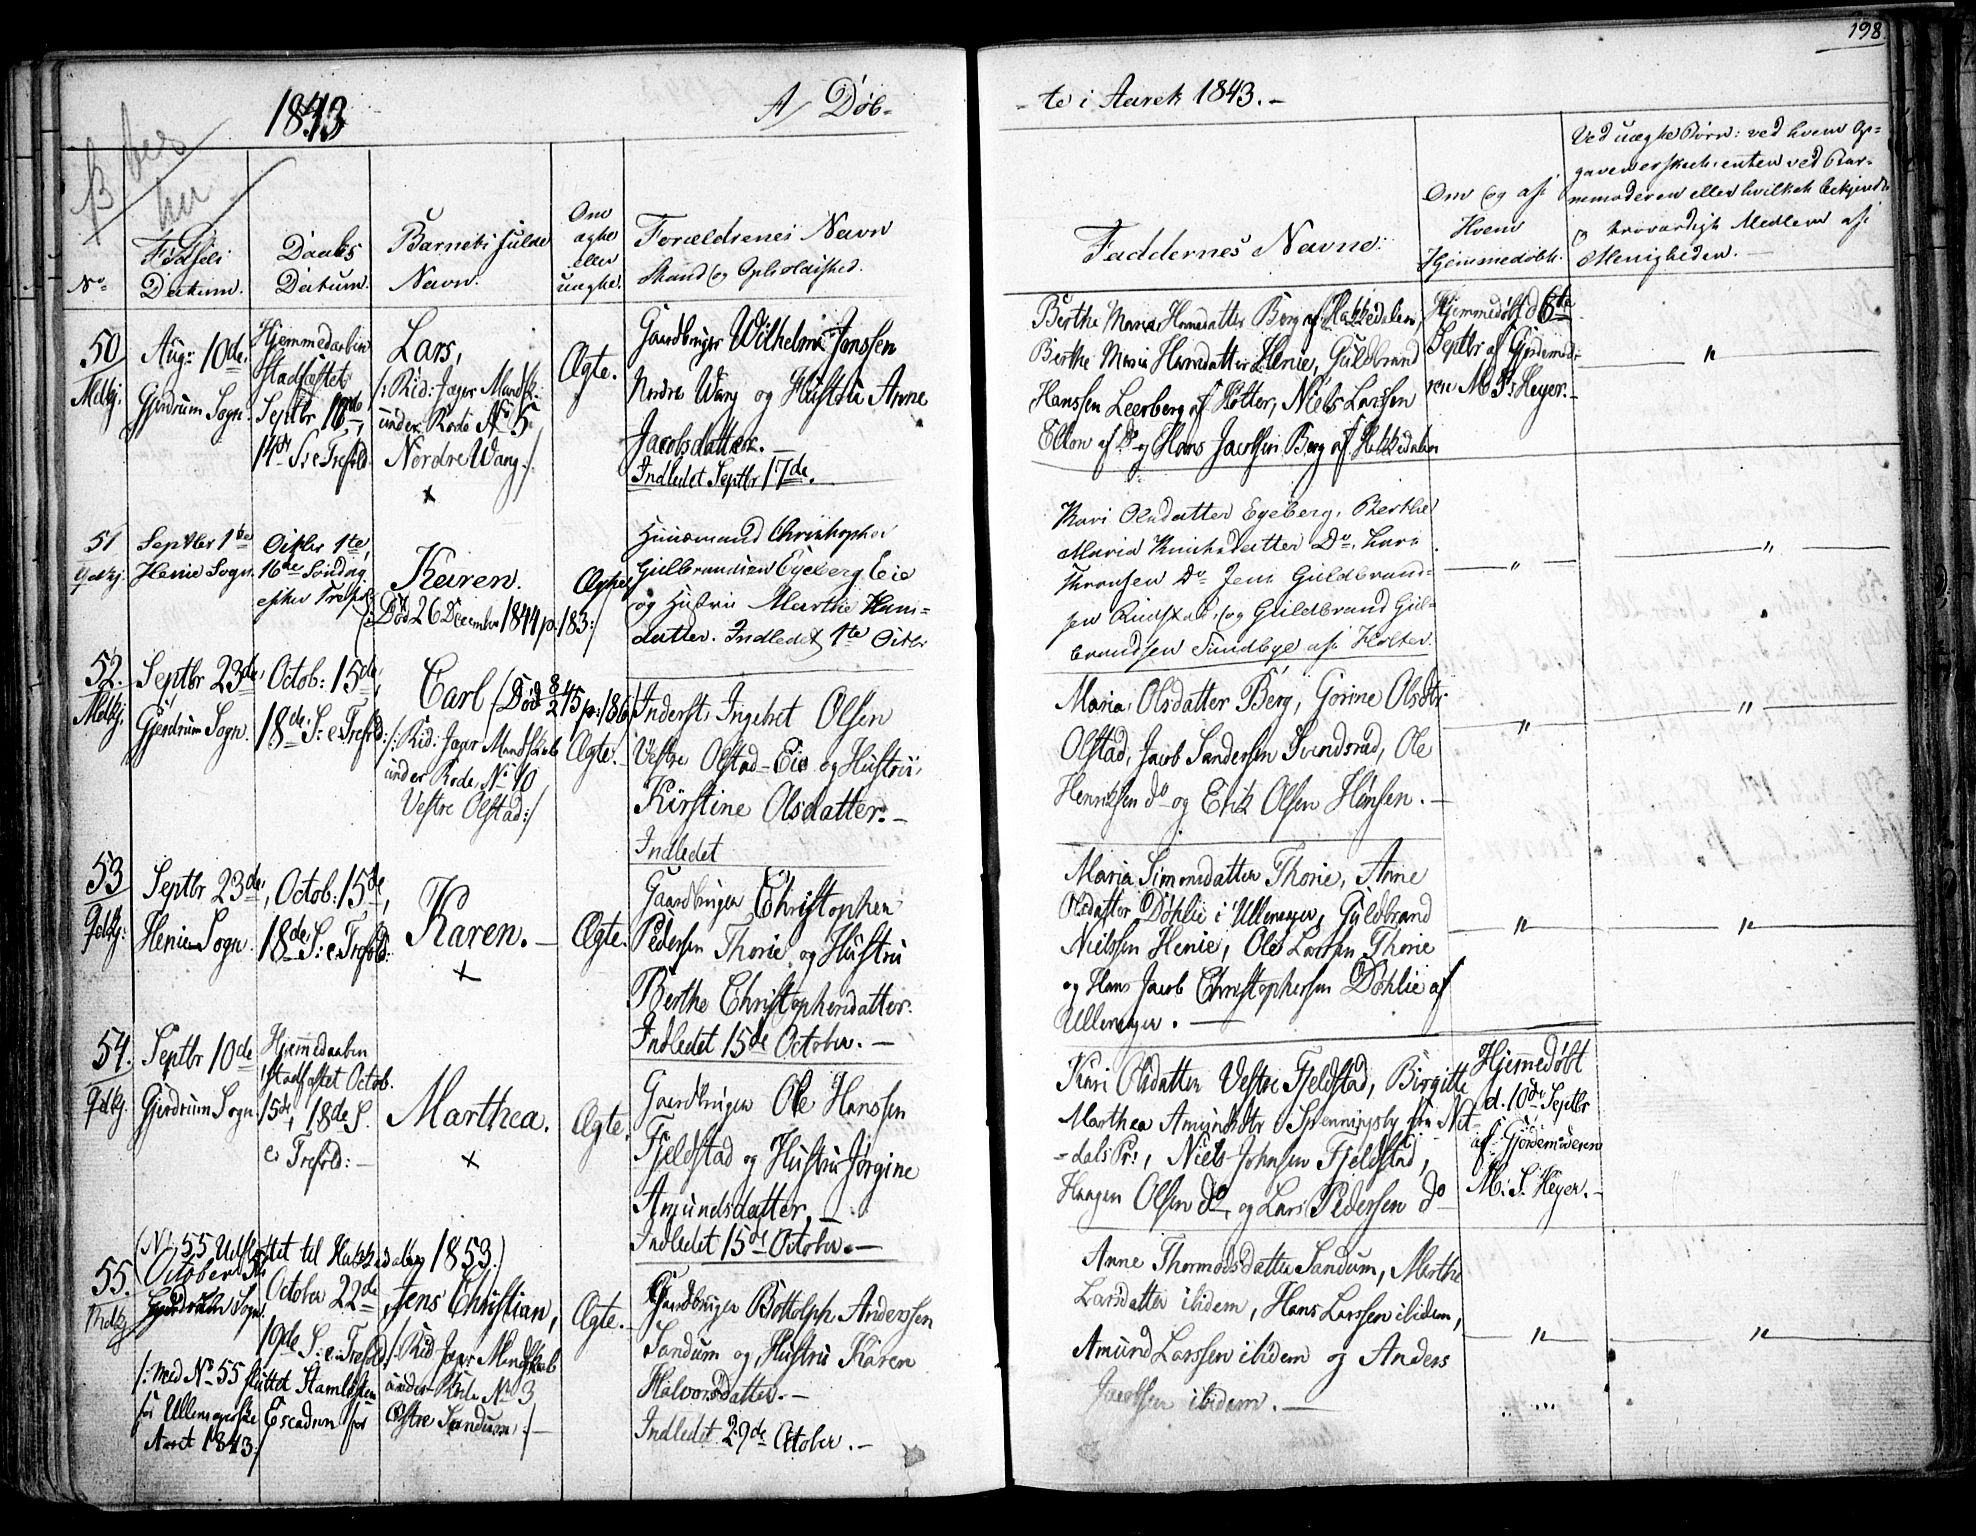 198
1843
A/ Døb-
-te i Aaret 1843.-
No
Fødsels
Datum.
Daabs
Datum.
Barnets fulde
Navn.
Om
ægte
eller
uægte.
Forældrenes Navn
Stand og Opholdssted.
Faddernes Navne:
Om og af
Hvem
Hjemmedøbt.
Ved uægte Børn: ved hvem Op-
gaven er skeet, enten ved Bar-
nmoderen eller hvilket bekjendt
og troværdigt Medlem af
Menigheden.-
50
Mdkj.
Aug: 10de.
Gjerdrum Sogn.
Hjemmedaaben
Stadfæstet
Septbr 10de,
S: e Trefold:
Lars,
/: Rid: Jæger Mandsk:
under Rode No 5
Nordre Wang:/
x
Ægte.
Gaardbruger Wilhelm Jonssen
Nordre Wang og Hustru Anne
Jacobsdatter.-
Indledet Septbr 17de.
Berthe Maria Hansdatter Berg af Hakkedalen,
Berthe Maria Hansdatter Henie, Guldbrand
Hanssen Leerberg af Holter, Niels Larssen
Elton af Do og Hans Jacobsen Berg af Hakkedalen
Hjemmedøbt d 6te
Septbr af Gjordemode-
ren M. S. Heyer.-
"
51
Qvkj.
Septber 1te
Henie Sogn.
Octbr 1te,
16de Søndag
efter Trefold:
Karen.
/: Død 26 December 1844 p. 183:/
Ægte
Huusmand Christopher
Gulbrandsen Egeberg Eie
og Hustru Marthe Hans-
datter. Indledet 1te Octbr
Kari Olsdatter Egeberg, Berthe
Maria Knudsdatter Do, Lars
Thronsen Do Jens Guldbrand-
sen Rudstad, og Guldbrand Gul-
brandsen Sundbye af Holter.
"
"
52.
Mdkj.
Septbr 23de,
Gjerdrum Sogn.
Octob: 15de,
18de S: e. Trefold:
Carl /Død 8/2 45 p: 186/
/: Rid: Jæger Mandskab
under Rode No 10
Vestre Olstad:/
Ægte.
Inderst Ingebret Olsen
Vestre Olstad-Eie og Hustru
Kirstine Olsdatter.-
Indledet
Maria Olsdatter Berg, Gorine Olsdtr
Olstad, Jacob Sandersen Svendsrud, Ole
Henriksen do og Erik Olsen Hønsen.-
"
"
53
Qvkj.
Septbr 23de,
Henie Sogn.
Octob: 15de,
18de S: e. Trefold:
Karen.-
x
Ægte.
Gaardbruger Christopher
Pedersen Thorie og Hustru
Berthe Christophersdatter.
Indledet 15de October.-
Maria Simensdatter Thorie, Anne
Olsdatter Døhlie i Ullensager, Gulbrand
Nielssen Henie, Ole Larssen Thorie
og Hans Jacob Christophersen Døhlie af
Ullensager.-
"
"
54.
Qvkj.
Septbr 10de
Gjerdrum Sogn.
Hjemmedaaben
stadfæstet Octob.
15de, 18de S.
e. Trefold:-
Marthea.
x
Ægte.
Gaardbruger Ole Hanssen
Fjeldstad og Hustru Jørgine
Amundsdatter.-
Indledet 15de October.-
Kari Olsdatter Vestre Fjeldstad, Birgitte
Marthea Amundsdtr Spenningsby fra Nit-
-dals Pr:, Niels Johnsen Fjeldstad,
Haagen Olsen do, og Lars Pedersen do
Hjemmedøbt
d. 10de Septbr
af Gjordemoderen
M. S. Heyer.-
(No 55 Udflyttet til Hakkedalen 1853.)
55.
Mdkj
October 5te
Gjerdrum Sogn.
October 22de,
19de S: e. Trefold:
Jens Christian,
/: Rid: Jæger Mandskab
under Rode No 3
Østre Sandum:/-
/: Med No 55 sluttet Stamlisten
for Ullensagerske Escadron for
Aaret 1843:/
Ægte.
Gaardbruger Bottolph Anderssen
Sandum og Hustru Karen
Halvorsdatter.-
Indledet 29de October.-
Anne Thormodsdatter Sandum, Marthe
Larsdatter ibidem, Hans Larssen ibidem,
Amund Larssen ibidem og Anders
Jacobsen ibidem.-
"
"